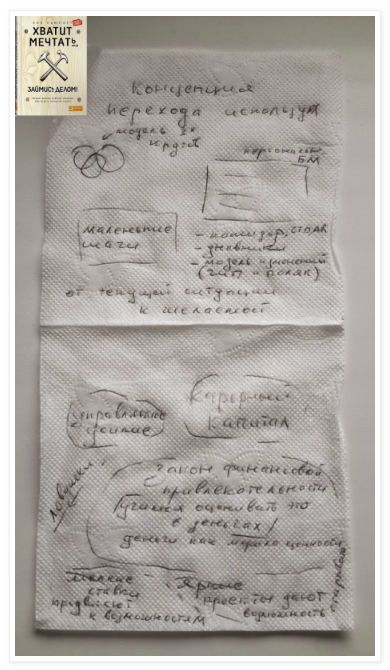 ХВАТИТ
МЕЧТАТЬ
ЗАЙМИСЬ ДЕЛОМ!
Концепция
перехода использует
модель 3х
кругов
персональн.
БМ
маленькие
шаги
- помидор,
- дневники
- модель изменений
от текущей ситуации
к желаемой
усилие
карьерный
капитал
ловушки
закон финансовой
привлекательности
(учимся оценивать это
в деньгах/
деньги как мерило ценности
мелкие
ставки
к возможностям
Яркие
проекты дают
возможность